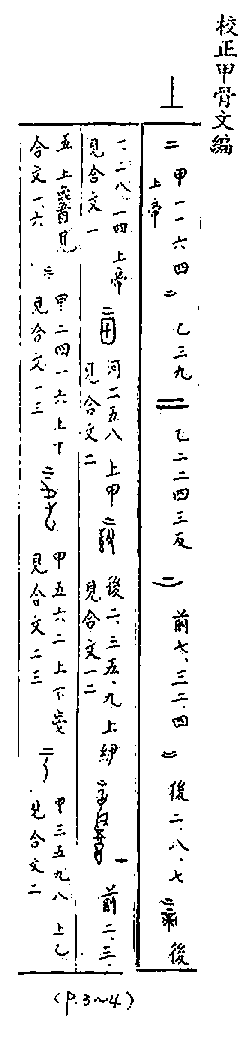 校正甲骨文編
上
二 甲一一六四 上帝 二 乙三九 二 乙二二四三反 二 前七、三二、四 二 後二、八、七 後
一、二八、一四 上帝 見合文一 河二五八 上甲 見合文二 後二、三五、九 上 見合文一二 前二、三、
五 上 見合文一、六 甲二四一六 上下 見合文一三 甲五六二 上下 見合文二三 甲三五九八 上乙 見合文二
(P.3~4)